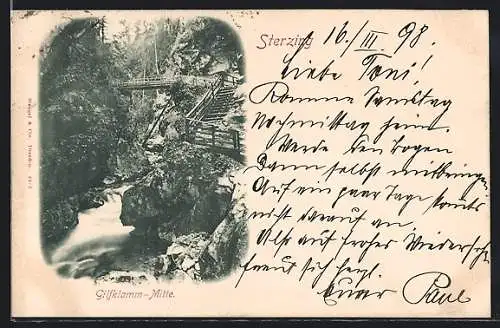 Sterzing 16./III 98.
Liebe Toni!
Komme Samstag
Nachmittag heim.
Werde den Bogen
Dann selbst mitbringen
Auf ein paar Tage kommts
nicht darauf an.
Also auf frohes Wiederseh'n
freut sich herzl.
Euer Paul
Gilfklamm-Mitte.